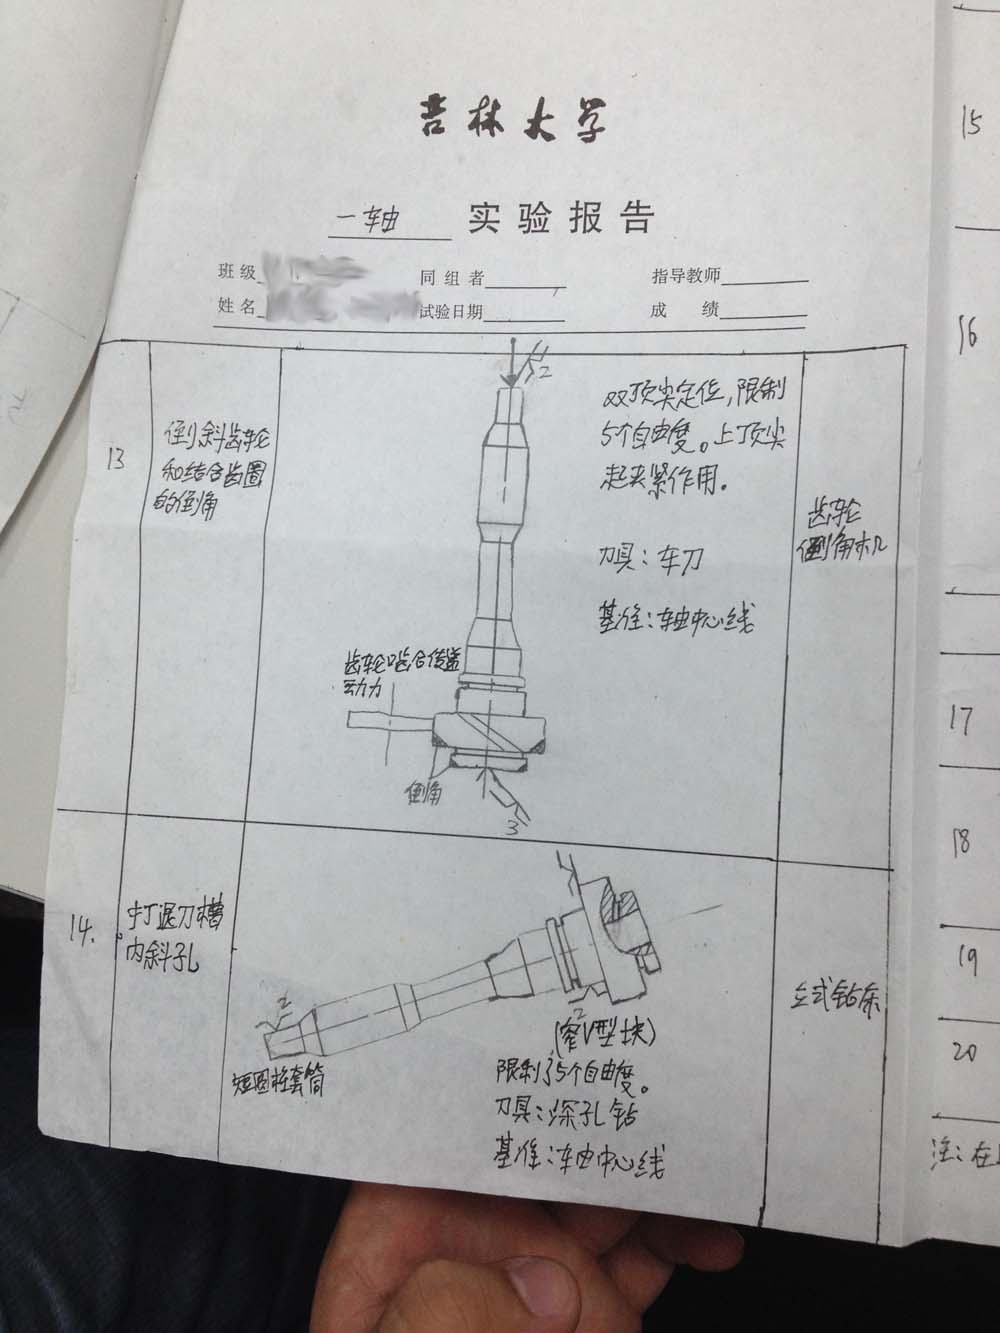 吉林大学
一轴 实验报告
班级 同组者 指导教师
姓名 试验日期 成绩
13
倒斜齿轮
和结合齿圈
的倒角
2
双顶尖定位，限制
5个自由度。上顶尖
起夹紧作用。
刀具：车刀
基准：轴中心线
齿轮啮合传递
动力
倒角
3
齿轮
倒角机
14.
打退刀槽
内斜孔
2
短圆柱套筒
2
(窄V型块)
限制了5个自由度。
刀具：深孔钻
基准：轴中心线
立式钻床
15
16
17
18
19
20
注：在